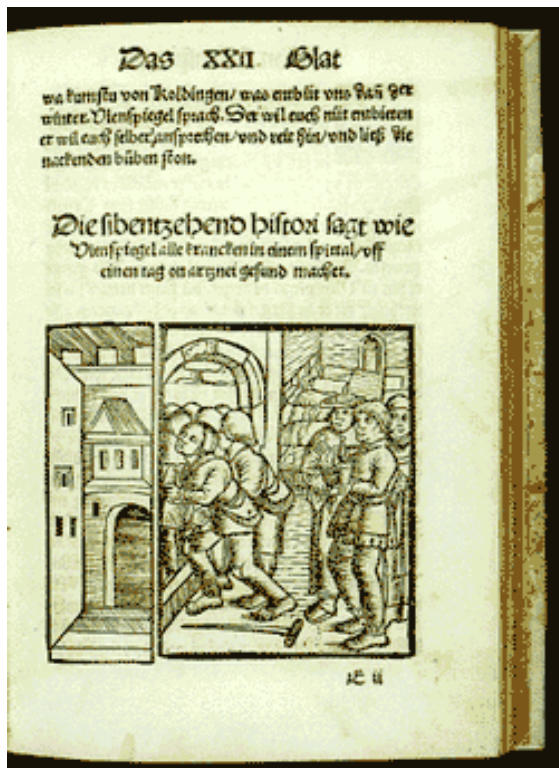 Das XXII. Blat
wa kumstu von Koldingen/ was entbüt vns dañ der
winter. Vlenspiegel sprach. Der wil euch nüt entbieten
er wil euch selber ansprechen/ vnd reit hin/ vnd ließ die
nackenden bůben ston.
Die sibentzehend histori sagt wie
Vlenspiegel alle krancken in einem spittal/ vff
einen tag on artznei gesund machet.
E ii